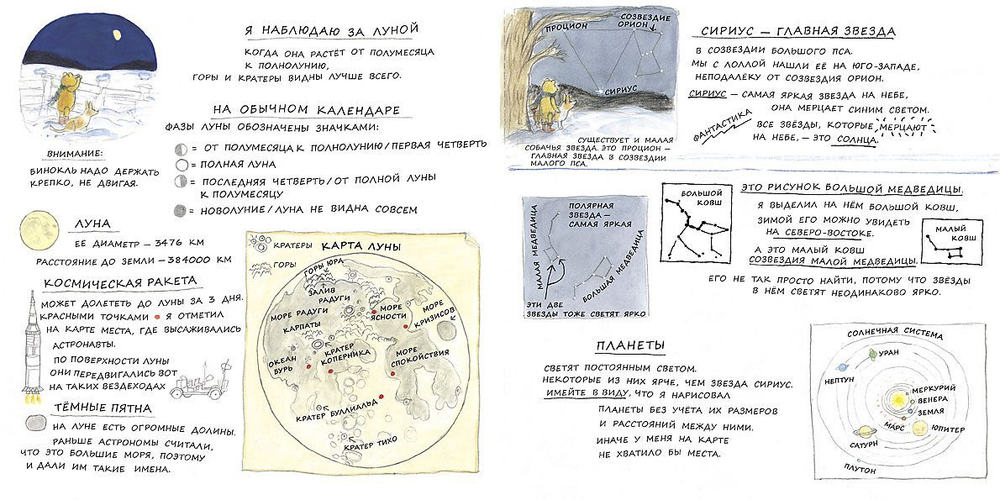 Я НАБЛЮДАЮ ЗА ЛУНОЙ
КОГДА ОНА РАСТЁТ ОТ ПОЛУМЕСЯЦА
К ПОЛНОЛУНИЮ,
ГОРЫ И КРАТЕРЫ ВИДНЫ ЛУЧШЕ ВСЕГО.
НА ОБЫЧНОМ КАЛЕНДАРЕ
ФАЗЫ ЛУНЫ ОБОЗНАЧЕНЫ ЗНАЧКАМИ:
= ОТ ПОЛУМЕСЯЦА К ПОЛНОЛУНИЮ/ПЕРВАЯ ЧЕТВЕРТЬ
= ПОЛНАЯ ЛУНА
= ПОСЛЕДНЯЯ ЧЕТВЕРТЬ/ОТ ПОЛНОЙ ЛУНЫ
К ПОЛУМЕСЯЦУ
= НОВОЛУНИЕ/ЛУНА НЕ ВИДНА СОВСЕМ
ВНИМАНИЕ:
БИНОКЛЬ НАДО ДЕРЖАТЬ
КРЕПКО, НЕ ДВИГАЯ.
ЛУНА
ЕЁ ДИАМЕТР – 3476 КМ
РАССТОЯНИЕ ДО ЗЕМЛИ – 384000 КМ
КОСМИЧЕСКАЯ РАКЕТА
МОЖЕТ ДОЛЕТЕТЬ ДО ЛУНЫ ЗА 3 ДНЯ.
КРАСНЫМИ ТОЧКАМИ • Я ОТМЕТИЛ
НА КАРТЕ МЕСТА, ГДЕ ВЫСАЖИВАЛИСЬ
АСТРОНАВТЫ.
ПО ПОВЕРХНОСТИ ЛУНЫ
ОНИ ПЕРЕДВИГАЛИСЬ ВОТ
НА ТАКИХ ВЕЗДЕХОДАХ
ТЁМНЫЕ ПЯТНА
НА ЛУНЕ ЕСТЬ ОГРОМНЫЕ ДОЛИНЫ.
РАНЬШЕ АСТРОНОМЫ СЧИТАЛИ,
ЧТО ЭТО БОЛЬШИЕ МОРЯ, ПОЭТОМУ
И ДАЛИ ИМ ТАКИЕ ИМЕНА.
КРАТЕРЫ
КАРТА ЛУНЫ
ГОРЫ
ГОРЫ ЮРА
ЗАЛИВ
РАДУГИ
МОРЕ РАДУГИ
МОРЕ
ЯСНОСТИ
МОРЕ
КРИЗИСОВ
КАРПАТЫ
ОКЕАН
БУРЬ
КРАТЕР
КОПЕРНИКА
МОРЕ
СПОКОЙСТВИЯ
КРАТЕР БУЛЛИАЛЬД
КРАТЕР ТИХО
ПРОЦИОН
СОЗВЕЗДИЕ
ОРИОН
СИРИУС
СУЩЕСТВУЕТ И МАЛАЯ
СОБАЧЬЯ ЗВЕЗДА. ЭТО ПРОЦИОН –
ГЛАВНАЯ ЗВЕЗДА В СОЗВЕЗДИИ
МАЛОГО ПСА.
СИРИУС – ГЛАВНАЯ ЗВЕЗДА
В СОЗВЕЗДИИ БОЛЬШОГО ПСА.
МЫ С ЛОЛЛОЙ НАШЛИ ЕЁ НА ЮГО-ЗАПАДЕ,
НЕПОДАЛЁКУ ОТ СОЗВЕЗДИЯ ОРИОН.
СИРИУС – САМАЯ ЯРКАЯ ЗВЕЗДА НА НЕБЕ,
ОНА МЕРЦАЕТ СИНИМ СВЕТОМ.
ФАНТАСТИКА
ВСЕ ЗВЁЗДЫ, КОТОРЫЕ МЕРЦАЮТ
НА НЕБЕ, – ЭТО СОЛНЦА.
ПОЛЯРНАЯ
ЗВЕЗДА –
САМАЯ ЯРКАЯ
МАЛАЯ МЕДВЕДИЦА
БОЛЬШАЯ МЕДВЕДИЦА
ЭТИ ДВЕ
ЗВЕЗДЫ ТОЖЕ СВЕТЯТ ЯРКО
БОЛЬШОЙ
КОВШ
ЭТО РИСУНОК БОЛЬШОЙ МЕДВЕДИЦЫ.
Я ВЫДЕЛИЛ НА НЁМ БОЛЬШОЙ КОВШ,
ЗИМОЙ ЕГО МОЖНО УВИДЕТЬ
НА СЕВЕРО-ВОСТОКЕ.
А ЭТО МАЛЫЙ КОВШ
СОЗВЕЗДИЯ МАЛОЙ МЕДВЕДИЦЫ.
МАЛЫЙ
КОВШ
ЕГО НЕ ТАК ПРОСТО НАЙТИ, ПОТОМУ ЧТО ЗВЁЗДЫ
В НЁМ СВЕТЯТ НЕОДИНАКОВО ЯРКО.
ПЛАНЕТЫ
СВЕТЯТ ПОСТОЯННЫМ СВЕТОМ.
НЕКОТОРЫЕ ИЗ НИХ ЯРЧЕ, ЧЕМ ЗВЕЗДА СИРИУС.
ИМЕЙТЕ В ВИДУ, ЧТО Я НАРИСОВАЛ
ПЛАНЕТЫ БЕЗ УЧЁТА ИХ РАЗМЕРОВ
И РАССТОЯНИЙ МЕЖДУ НИМИ.
ИНАЧЕ У МЕНЯ НА КАРТЕ
НЕ ХВАТИЛО БЫ МЕСТА.
СОЛНЕЧНАЯ СИСТЕМА
УРАН
НЕПТУН
МЕРКУРИЙ
ВЕНЕРА
ЗЕМЛЯ
МАРС
ЮПИТЕР
САТУРН
ПЛУТОН